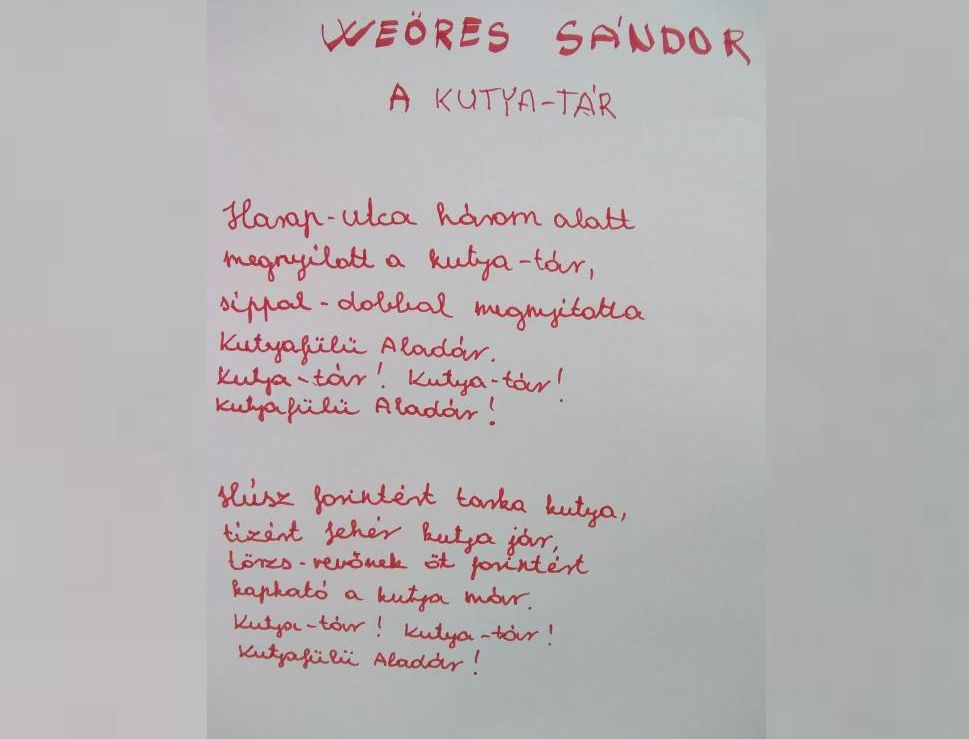 WEÖRES SÁNDOR
A KUTYA-TÁR
Harap-utca három alatt
megnyílott a kutya-tár,
síppal-dobbal megnyitotta
Kutyafülü Aladár.
Kutya-tár! Kutya-tár!
Kutyafülü Aladár!
Húsz forintért tarka kutya,
tízért fehér kutya jár,
törzs-vevőnek öt forintért
kapható a kutya már.
Kutya-tár! Kutya-tár!
Kutyafülü Aladár!